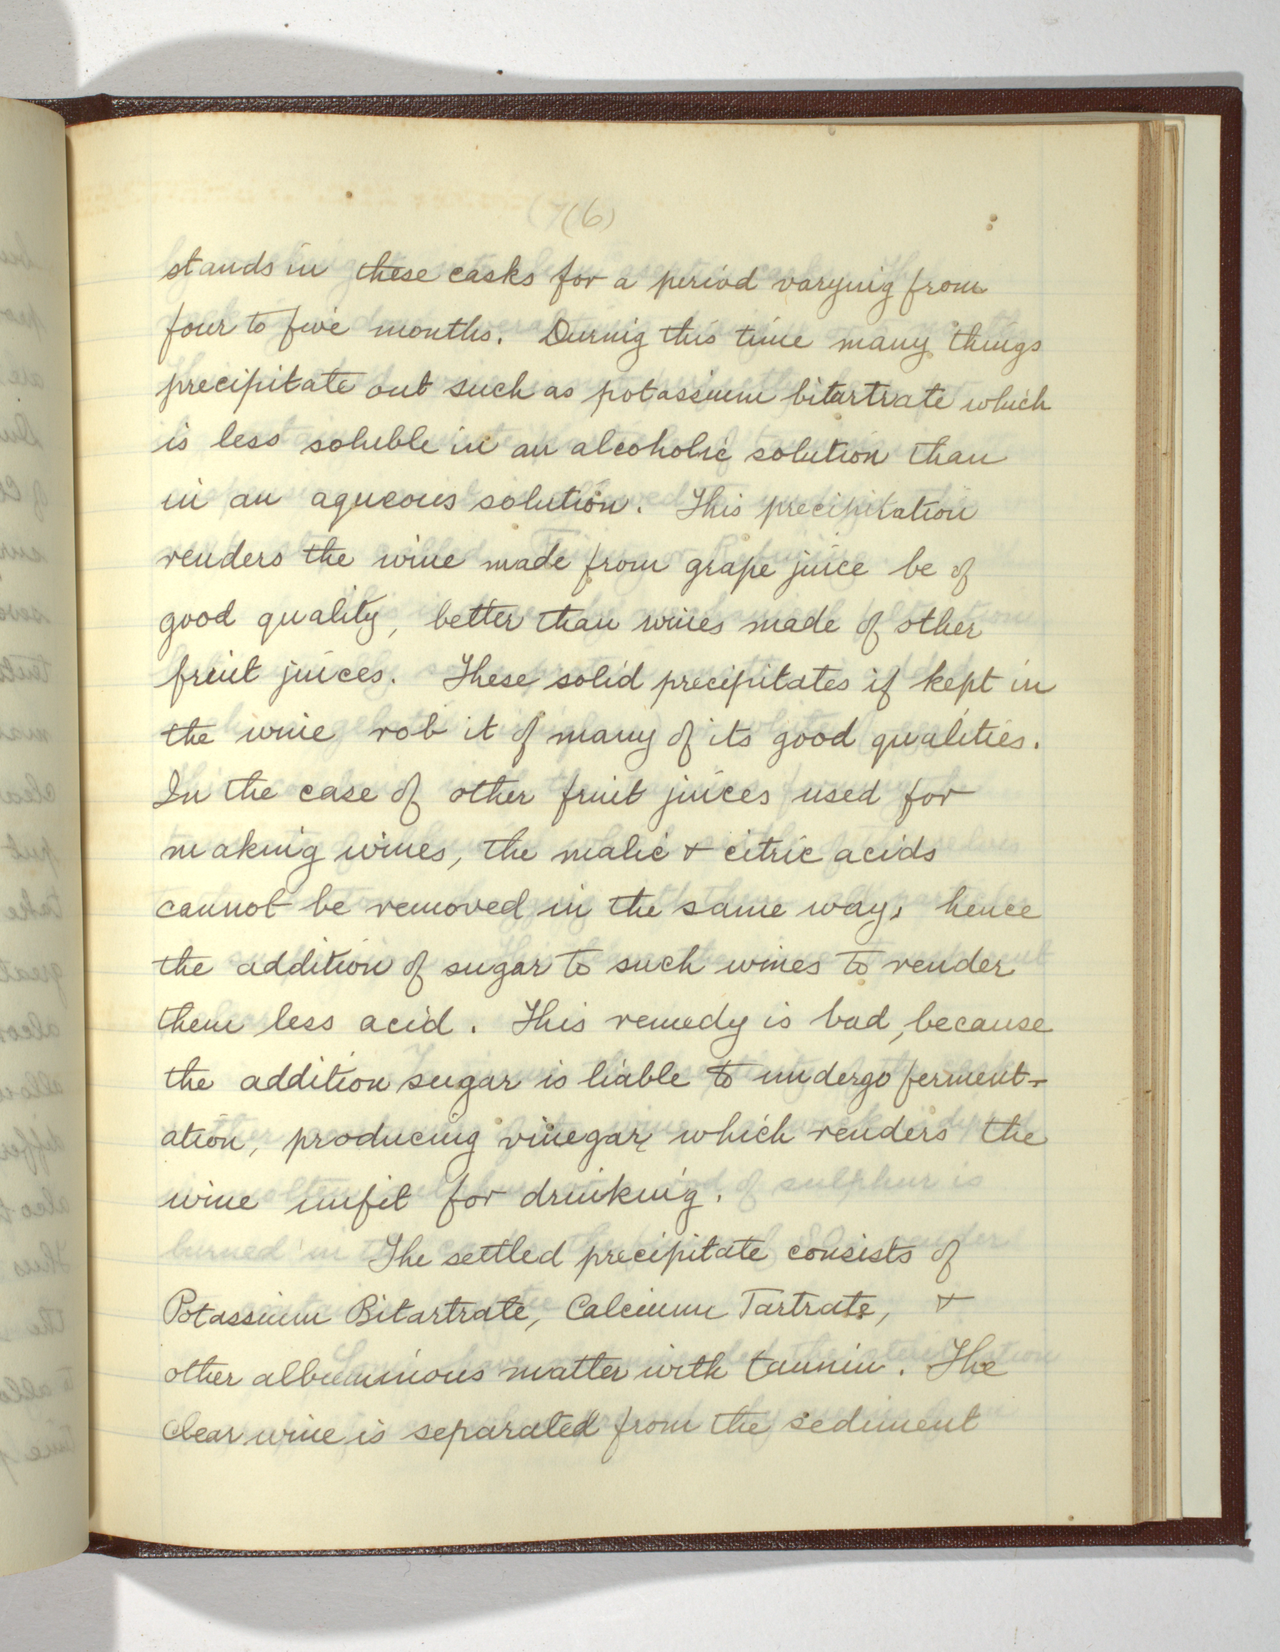 (6)
stands in these casks for a period varying from
four to five months. During this time many things
precipitate out such as potassium bitartrate which
is less soluble in an alcoholic solution than
in an aqueous solution. This precipitation
renders the wine made from grape juice be of
good quality, better than wines made of other
fruit juices. These solid precipitates if kept in
the wine rob it of many of its good qualities.
In the case of other fruit juices used for
making wines, the malic & citric acids
cannot be removed in the same way, hence
the addition of sugar to such wines to render
them less acid. This remedy is bad, because
the addition sugar is liable to undergo ferment-
ation, producing vinegar, which renders the
wine unfit for drinking.
The settled precipitate consists of
Potassium Bitartrate, Calcium Tartrate, &
other albuminous matter with tannin. The
clear wine is separated from the sediment